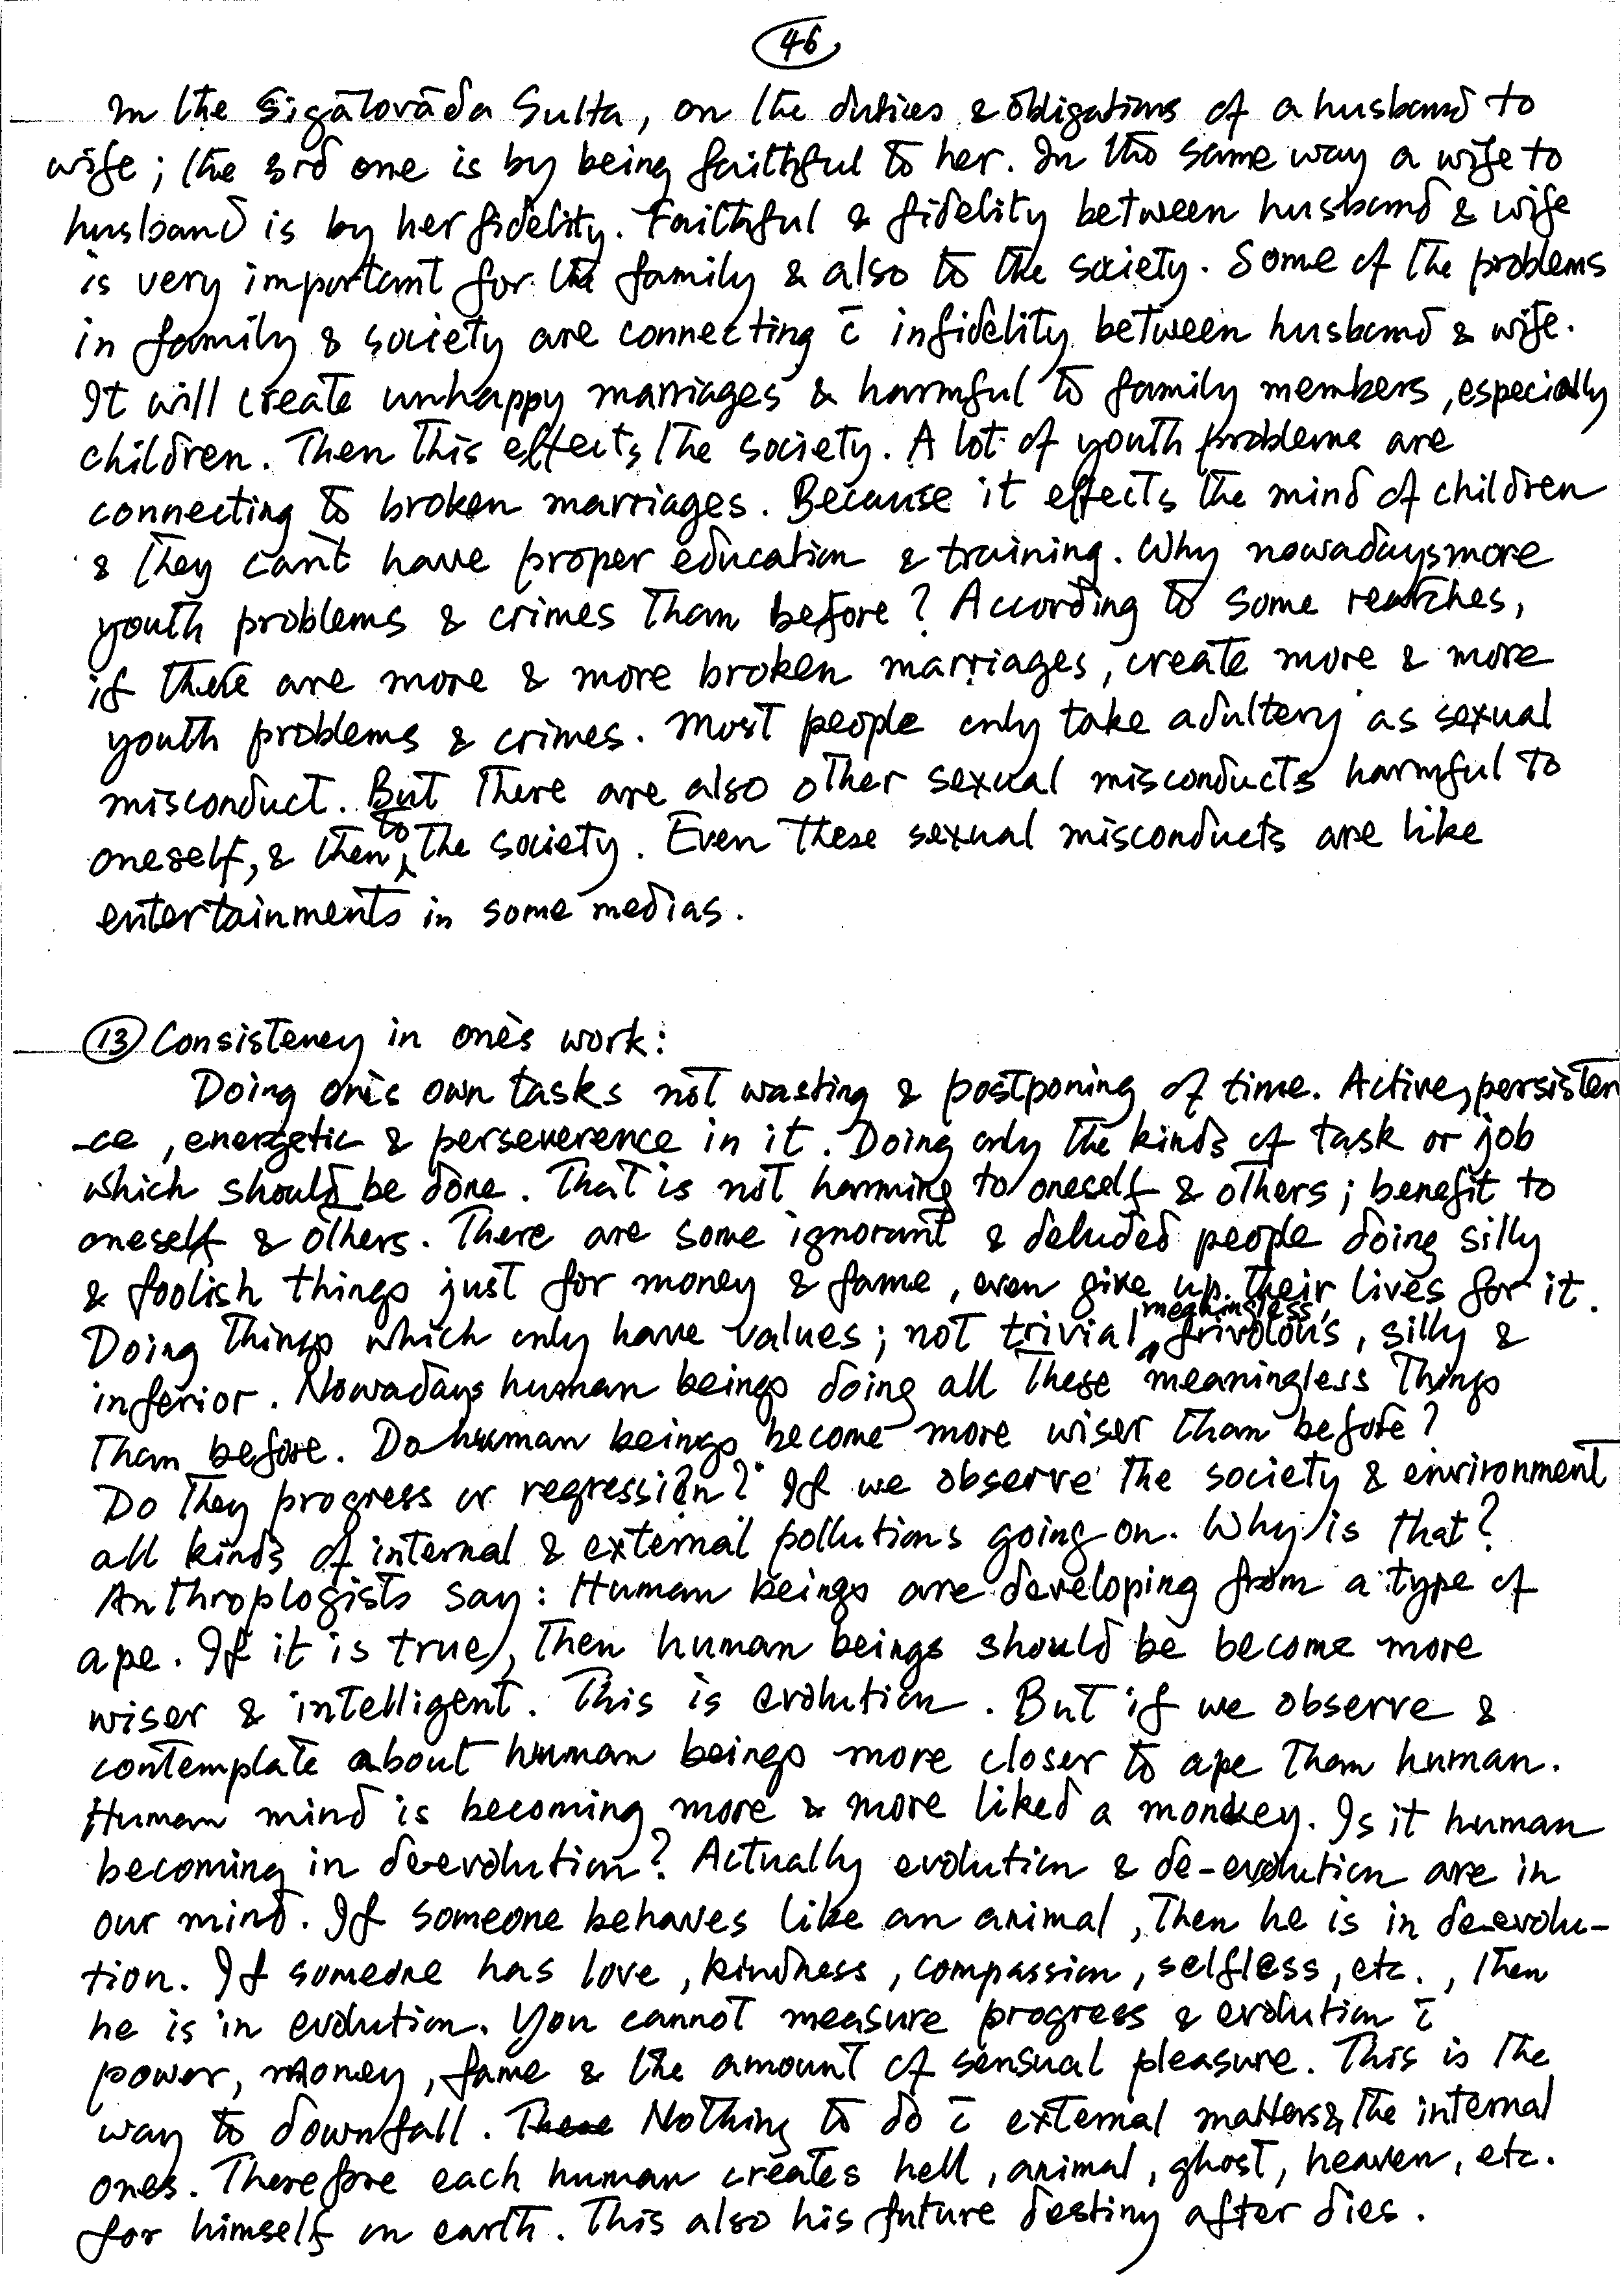 46
In the Sigālovāda Sutta, on the duties & obligations of a husband to
wife; the 3rd one is by being faithful to her. In the same way a wife to
husband is by her fidelity. Faithful & fidelity between husband & wife
is very important for the family & also to the society. Some of the problems
in family & society are connecting c̄ infidelity between husband & wife.
It will create unhappy marriages & harmful to family members, especially
children. Then this effects the society. A lot of youth problems are
connecting to broken marriages. Because it effects the mind of children
& they can't have proper education & training. Why nowadays more
youth problems & crimes than before? According to some
if there are more & more broken marriages, create more & more
youth problems & crimes. Most people only take adultery as sexual
misconduct. But there are also other sexual misconducts harmful to
oneself, & then to the society. Even these sexual misconducts are like
entertainments in some medias.
⑬ Consistency in one's work:
Doing one's own tasks not wasting & postponing of time. Active, persisten
-ce, energetic & perseverence in it. Doing only the kinds of task or job
which should be done. That is not harming to oneself & others; benefit to
oneself & others. There are some ignorant & deluded people doing silly
& foolish things just for money & fame, even give up their lives for it.
Doing things which only have values; not trivial, meaningless, frivolous, silly &
inferior. Nowadays human beings doing all these meaningless things
than before. Do human beings become more wiser than before?
Do they progress or regression? If we observe the society & environment
all kinds of internal & external pollutions going on. Why is that?
Anthroplogists say: Human beings are developing from a type of
ape. If it is true, then human beings should be become more
wiser & intelligent. This is evolution. But if we observe &
contemplate about human beings more closer to ape than human.
Human mind is becoming more & more liked a monkey. Is it human
becoming in de-evolution? Actually evolution & de-evolution are in
our mind. If someone behaves like an animal, then he is in de-evolu-
tion. If someone has love, kindness, compassion, selfless, etc., then
he is in evolution. You cannot measure progress & evolution c̄
power, money, fame & the amount of sensual pleasure. This is the
way to downfall. There Nothing to do c̄ external matters, the internal
ones. Therefore each human creates hell, animal, ghost, heaven, etc.
for himself on earth. This also his future destiny after dies.